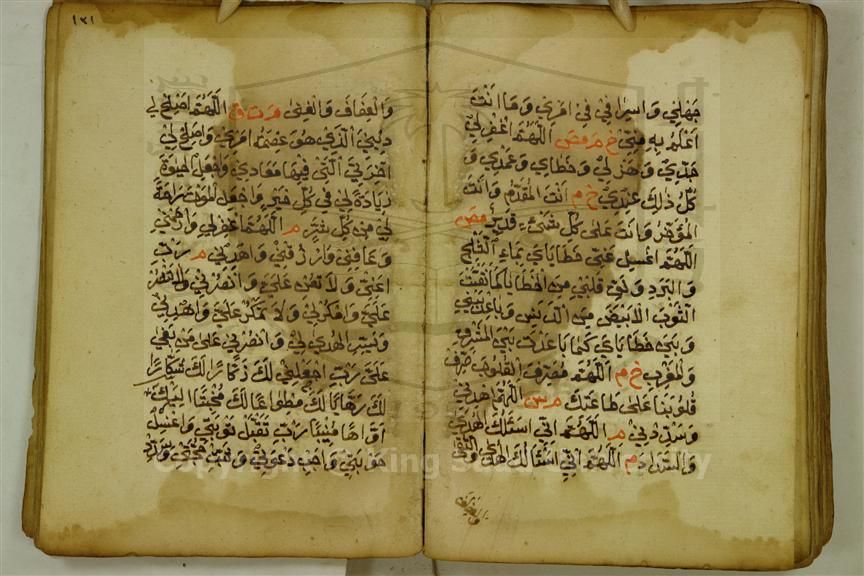 جهلي واسرافي في امري وما انت
اعلم به مني خ م مص اللهم اغفر لي
جدي وهزلي وخطاي وعمدي و
كل ذلك عندي خ م انت المقدم وانت
المؤخر وانت على كل شيء قدير مص
اللهم اغسل عني خطاياي بماء الثلج
والبرد ونق قلبي من الخطايا كما نقيت
الثوب الابيض من الدنس وباعد بيني
وبين خطاياي كما باعدت بين المشرق
والمغرب خ م اللهم مصرف القلوب صرف
قلوبنا على طاعتك م س اللهم اهدني
وسددني م اللهم اني اسئلك الهدى
والسداد م اللهم اني اسئالك الهدى والتقى
والعفاف
١٣١
والعفاف والغنى م ت ق اللهم اصلح لي
ديني الذي هو عصمة امري واصلح لي
اخرتي التي فيها معادي واجعل الحيوة
زيادة لي في كل خير واجعل الموت راحة
لي من كل شر م اللهم اغفر لي وارحمني
وعافني وارزقني واهدني م رب
اعني ولا تعن علي وانصرني ولا تنصر
علي وامكر لي ولا تمكر علي واهدني
ويسر الهدى لي وانصرني على من بغى
علي رب اجعلني لك ذكارا لك شكارا
لك رهابا لك مطواعا لك مخبتا اليك
اواها منيبا رب تقبل توبتي واغسل
حوبتي واجب دعوتي وثبت حجتي وسدد
Copyright © King Saud University